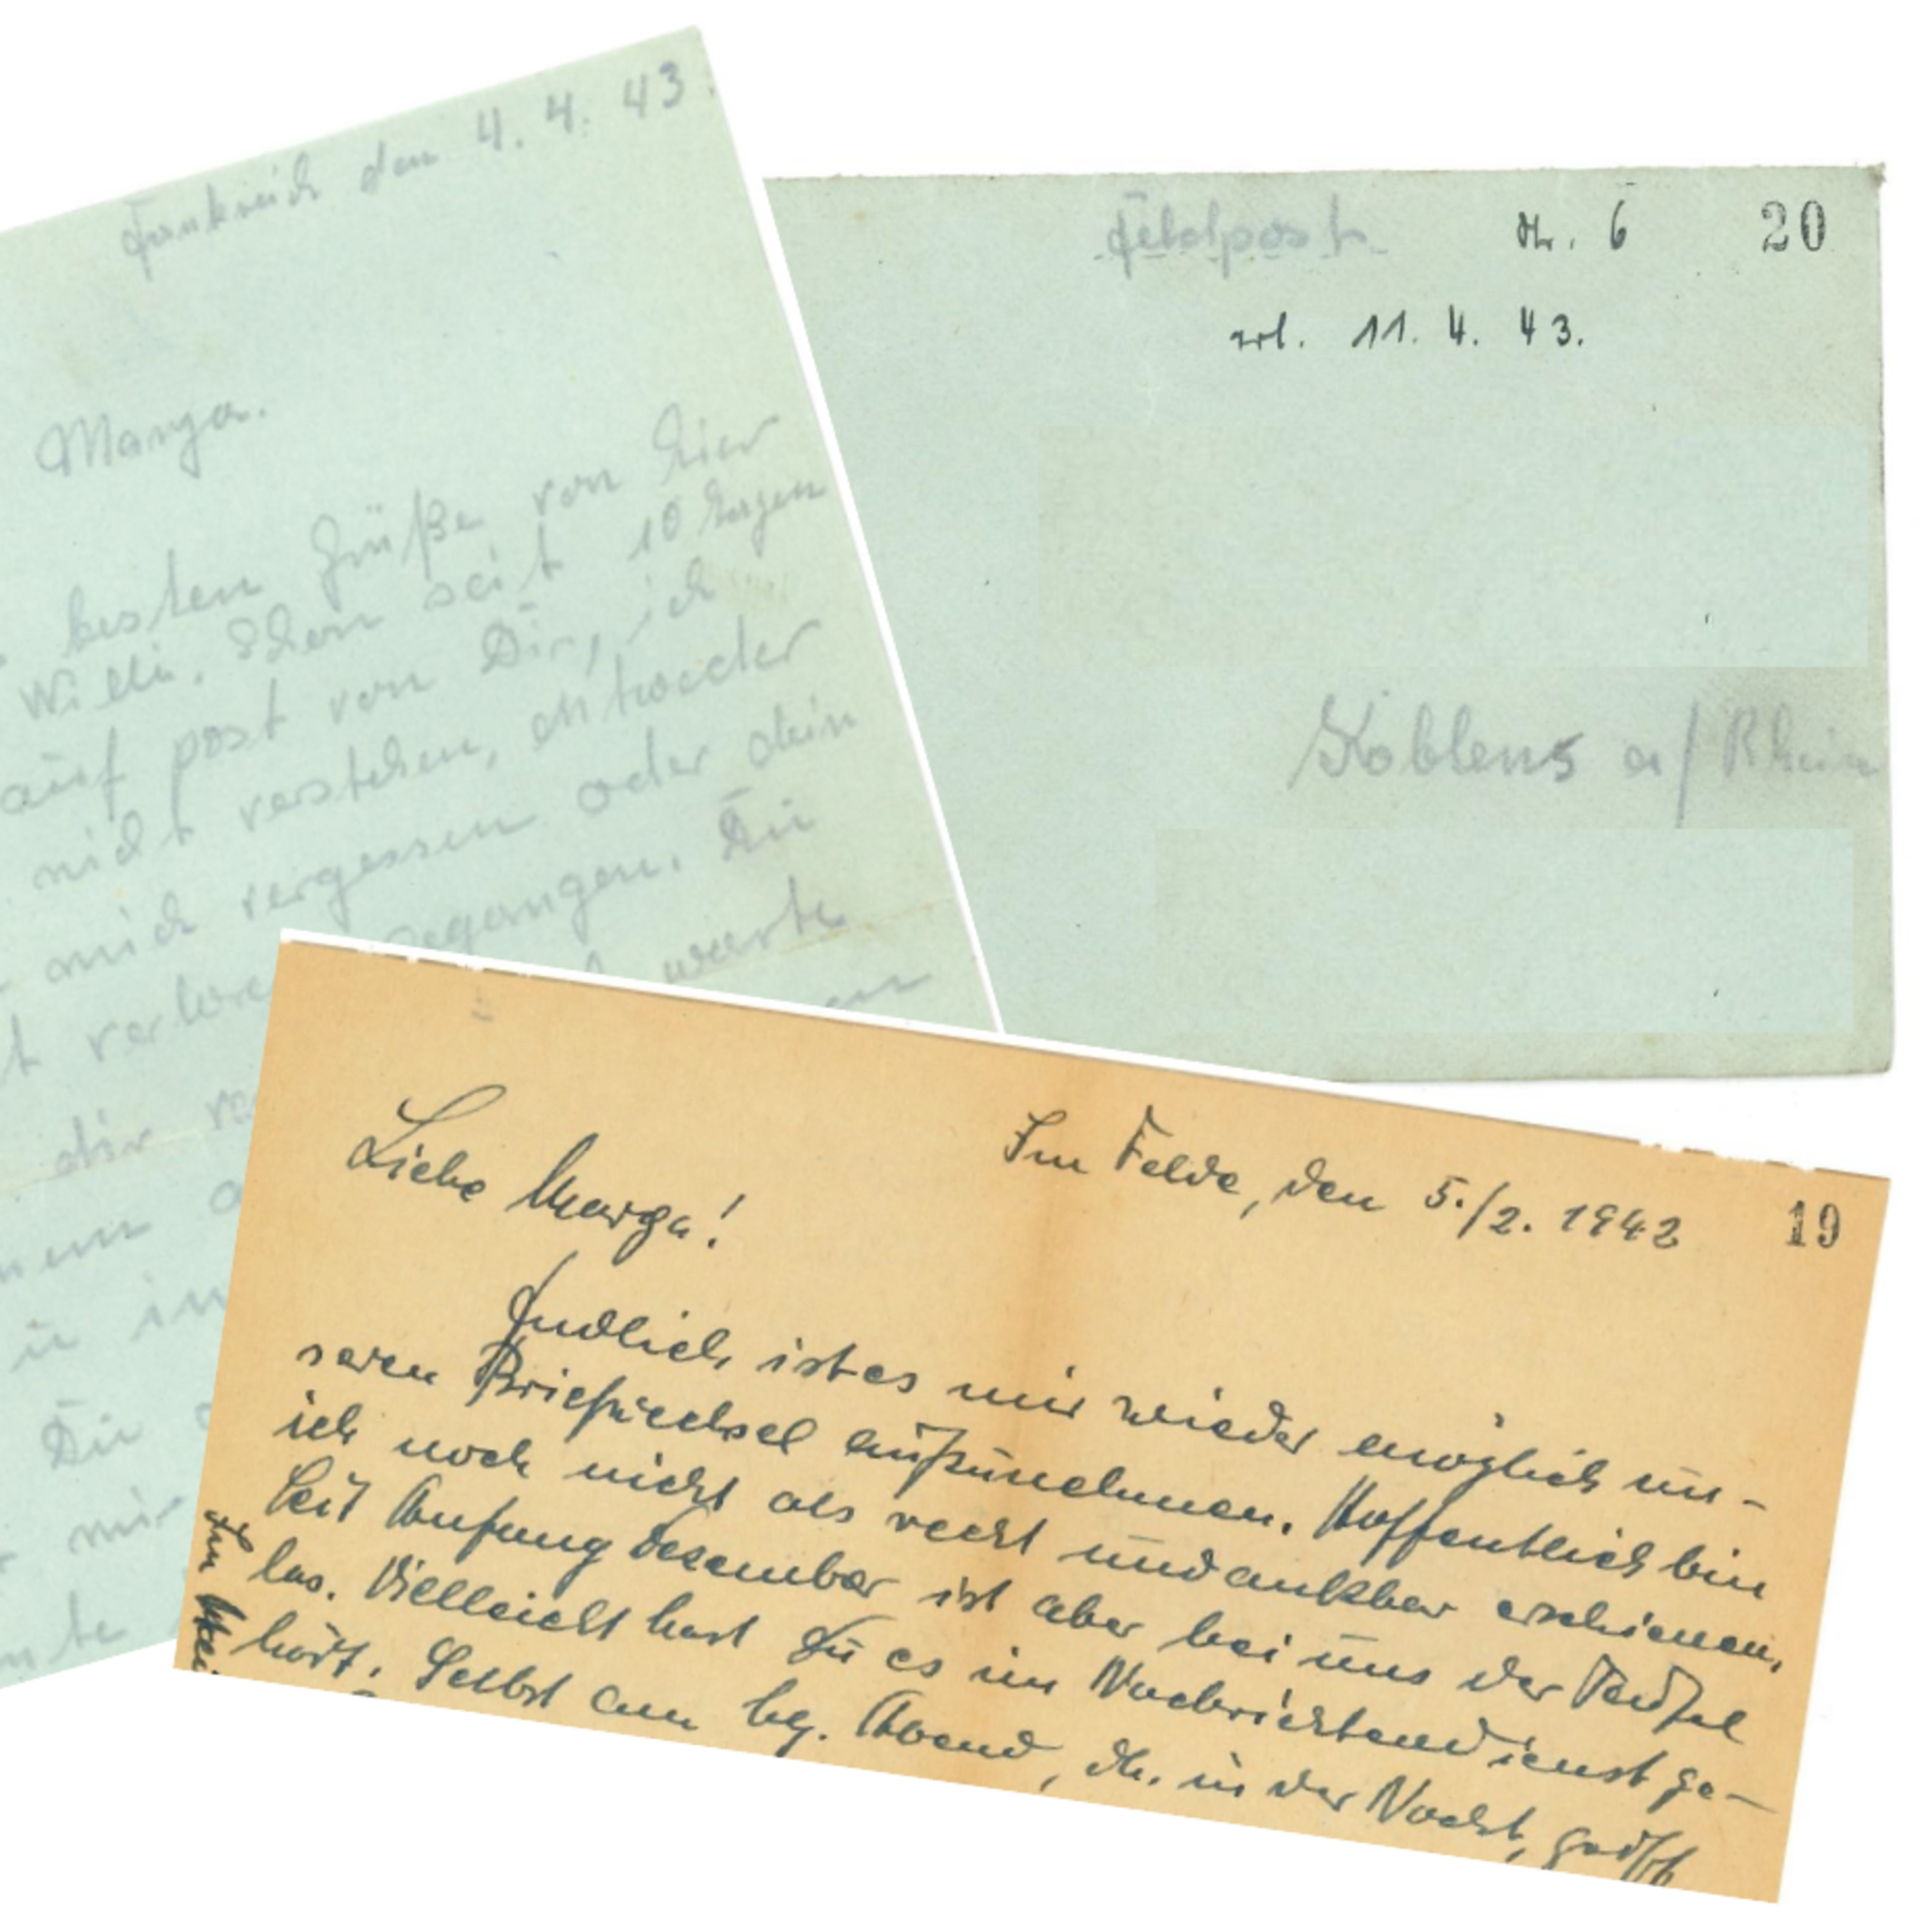 Frankreich den 4. 4. 43.
Marga.
besten Grüße von hier
Willi. Schon seit 10 Tagen
auf post von Dir, ich
nicht verstehen, entweder
mich vergessen oder dein
verlore gegangen. Du
warte
dir
Du
mir
Feldpost Nr. 6 20
erl. 11. 4. 43.
Koblenz a/Rhein
Im Felde, den 5./2. 1942 19
Liebe Marga!
Endlich ist es mir wieder möglich un-
seren Briefwechsel aufzunehmen. Hoffentlich bin
ich noch nicht als recht undankbar erschienen.
Seit Anfang Dezember ist aber bei uns der Teufel
los. Vielleicht hast Du es im Nachrichtendienst ge-
hört. Selbst am hg. Abend, dh. in der Nacht, griff